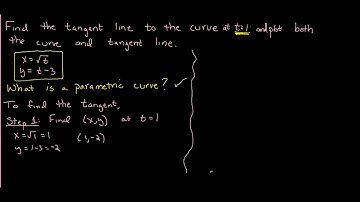 Find the tangent line to the curve at t=1 and plot both
the curve and tangent line.
x = √t
y = t-3
What is a parametric curve? ✓
To find the tangent,
Step 1: Find (x,y) at t=1
x=√1=1 (1,-2)
y=1-3=-2